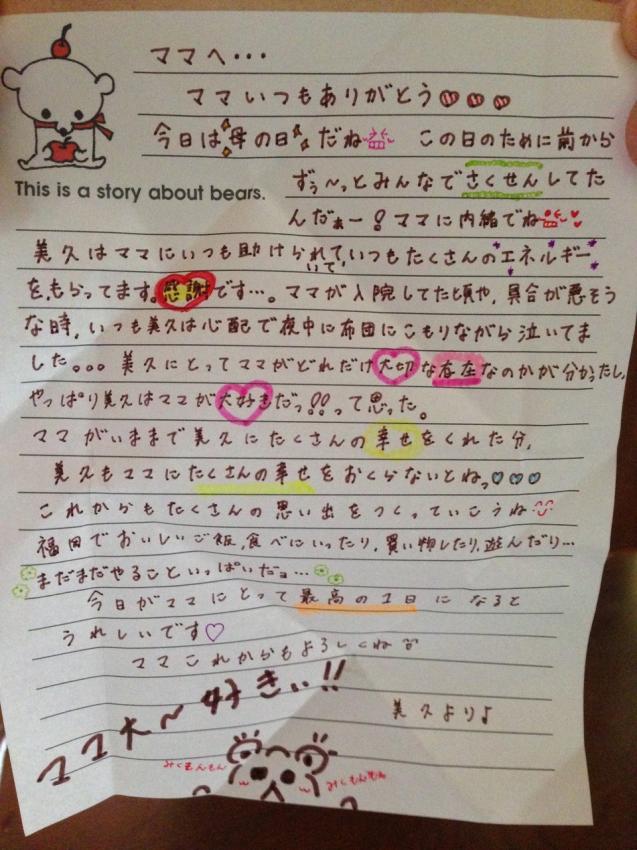 ママへ・・・
ママいつもありがとう
今日は母の日だね この日のために前から
This is a story about bears.
ずぅ~っとみんなでさくせんしてた
んだぁー!ママに内緒でね
美久はママにいつも助けられていて、いつもたくさんのエネルギー
をもらってます。感謝です…。ママが入院してた頃や、具合が悪そう
な時、いつも美久は心配で夜中に布団にこもりながら泣いてま
した。。。美久にとってママがどれだけ大切な存在なのかが分かったし、
やっぱり美久はママが大好きだっ!!って思った。
ママがいままで美久にたくさんの幸せをくれた分、
美久もママにたくさんの幸せをおくらないとねっ♡♡♡
これからもたくさんの思い出をつくっていこうね
福岡でおいしいご飯、食べにいったり、買い物したり、遊んだり…
まだまだやることいっぱいだョ…
今日がママにとって最高の1日になると
うれしいです♡
ママこれからもよろしくね
ママ大~好きぃ!!
美久より♪
みくもんもん
みくもんもん